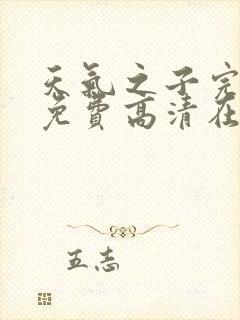 天氣之子完
免費高清在
五志